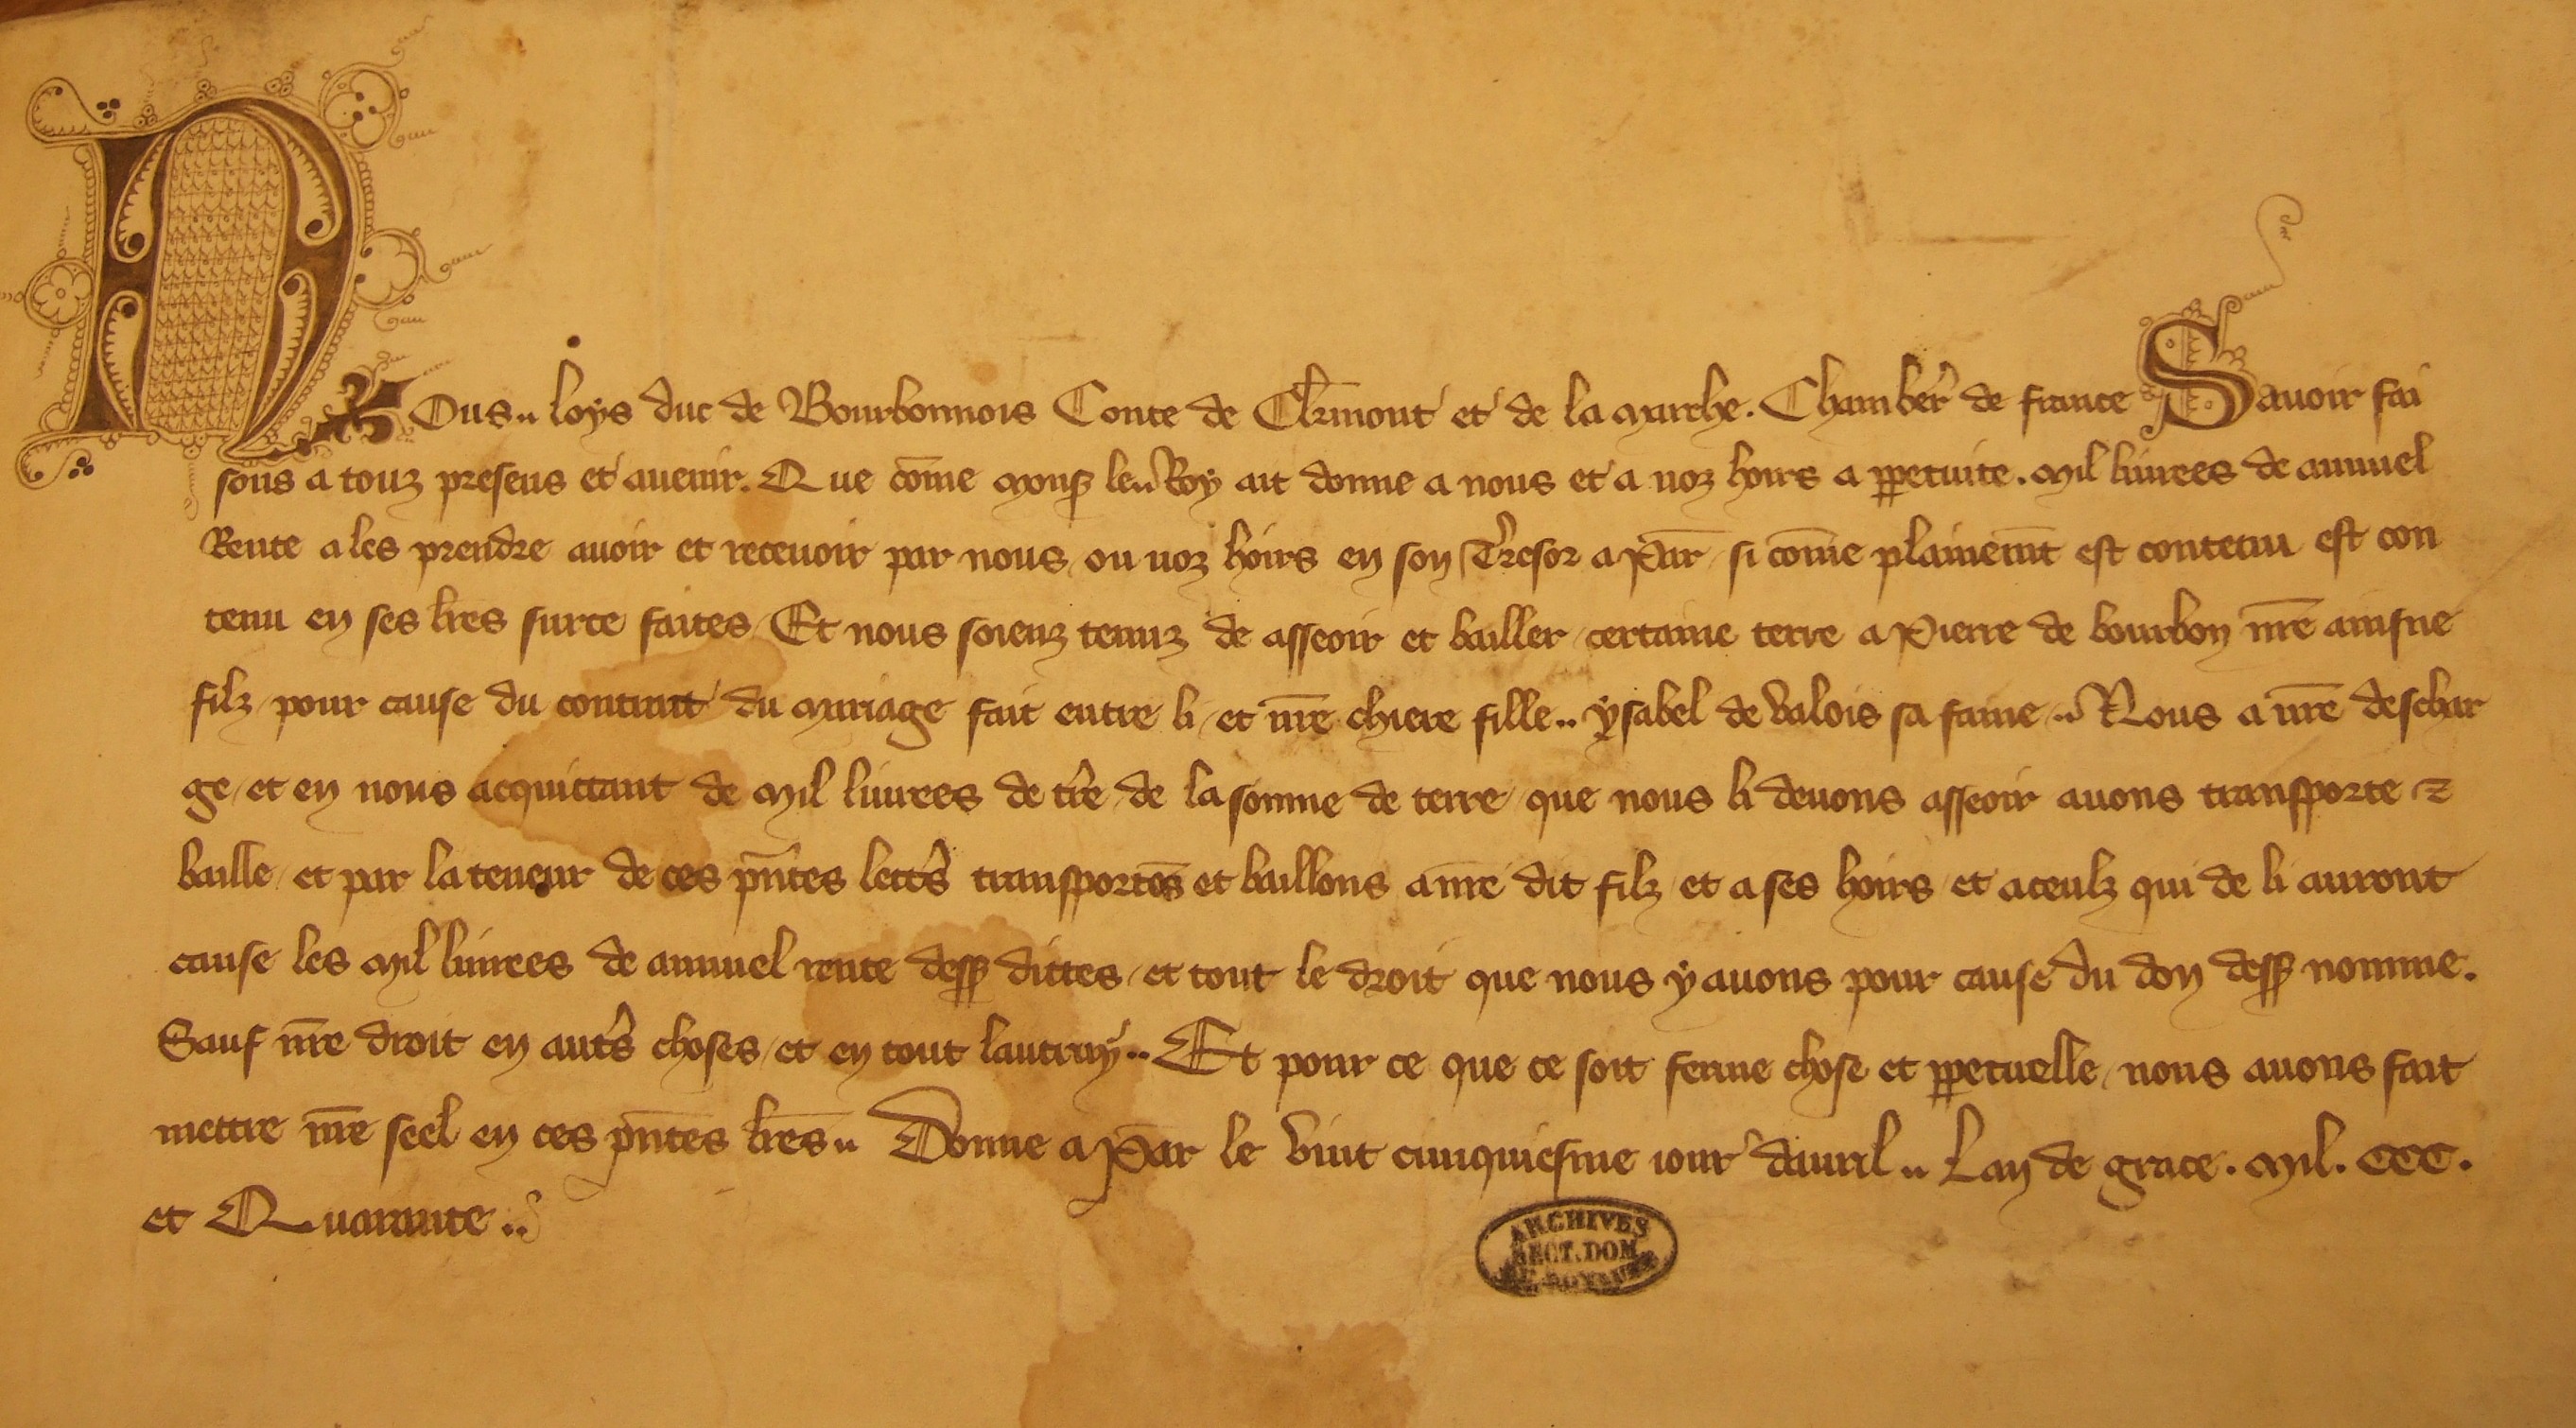 NOus .. loys duc de Bourbonnois Conte de Cl̄rmont et de la marche. Chamber̄ de france Sauoir fai
sons a touz presens et auenir. Que cōme mons̄ le .. Roy ait donne a nous et a noz hoirs a ꝑpetuite. mil liurees de annuel
Rente a les prendre auoir et receuoir par nous, ou noz hoirs en son Tresor a Par̄, si cōme plainem̄t est contenu est con
tenu en ses l̄res surce faites, Et nous soienz tenuz de asseoir et bailler, certaine terre a Pierre de bourbon n̄re ainsne
filz, pour cause du contraut du mariage fait entre li, et n̄re chiere fille .. ysabel de Valois sa fame .. Nous a n̄re deschar
ge, et en nous acquittant de mil liurees de t̄re, de la somme de terre, que nous li deuons asseoir auons transporte ⁊
baille, et par la teneur de ces pn̄tes lett̄s transportōs et baillons a n̄re dit filz, et a ses hoirs, et a ceulz qui de li auront
cause les mil liurees de annuel rente dess̄ dittes, et tout le droit que nous y auons pour cause du don dess̄ nomme.
Sauf n̄re droit en aut̄s choses, et en tout lautruy .. Et pour ce que ce soit ferme chose et ꝑpetuelle, nous auons fait
mettre n̄re seel en ces pn̄tes l̄res .. Donne a Par̄ le vint cinquiesme iour dauril .. Lan de grace. mil. CCC.
et Quarante ..
ARCHIVES
SECT. DOM.
DU ROYAUME